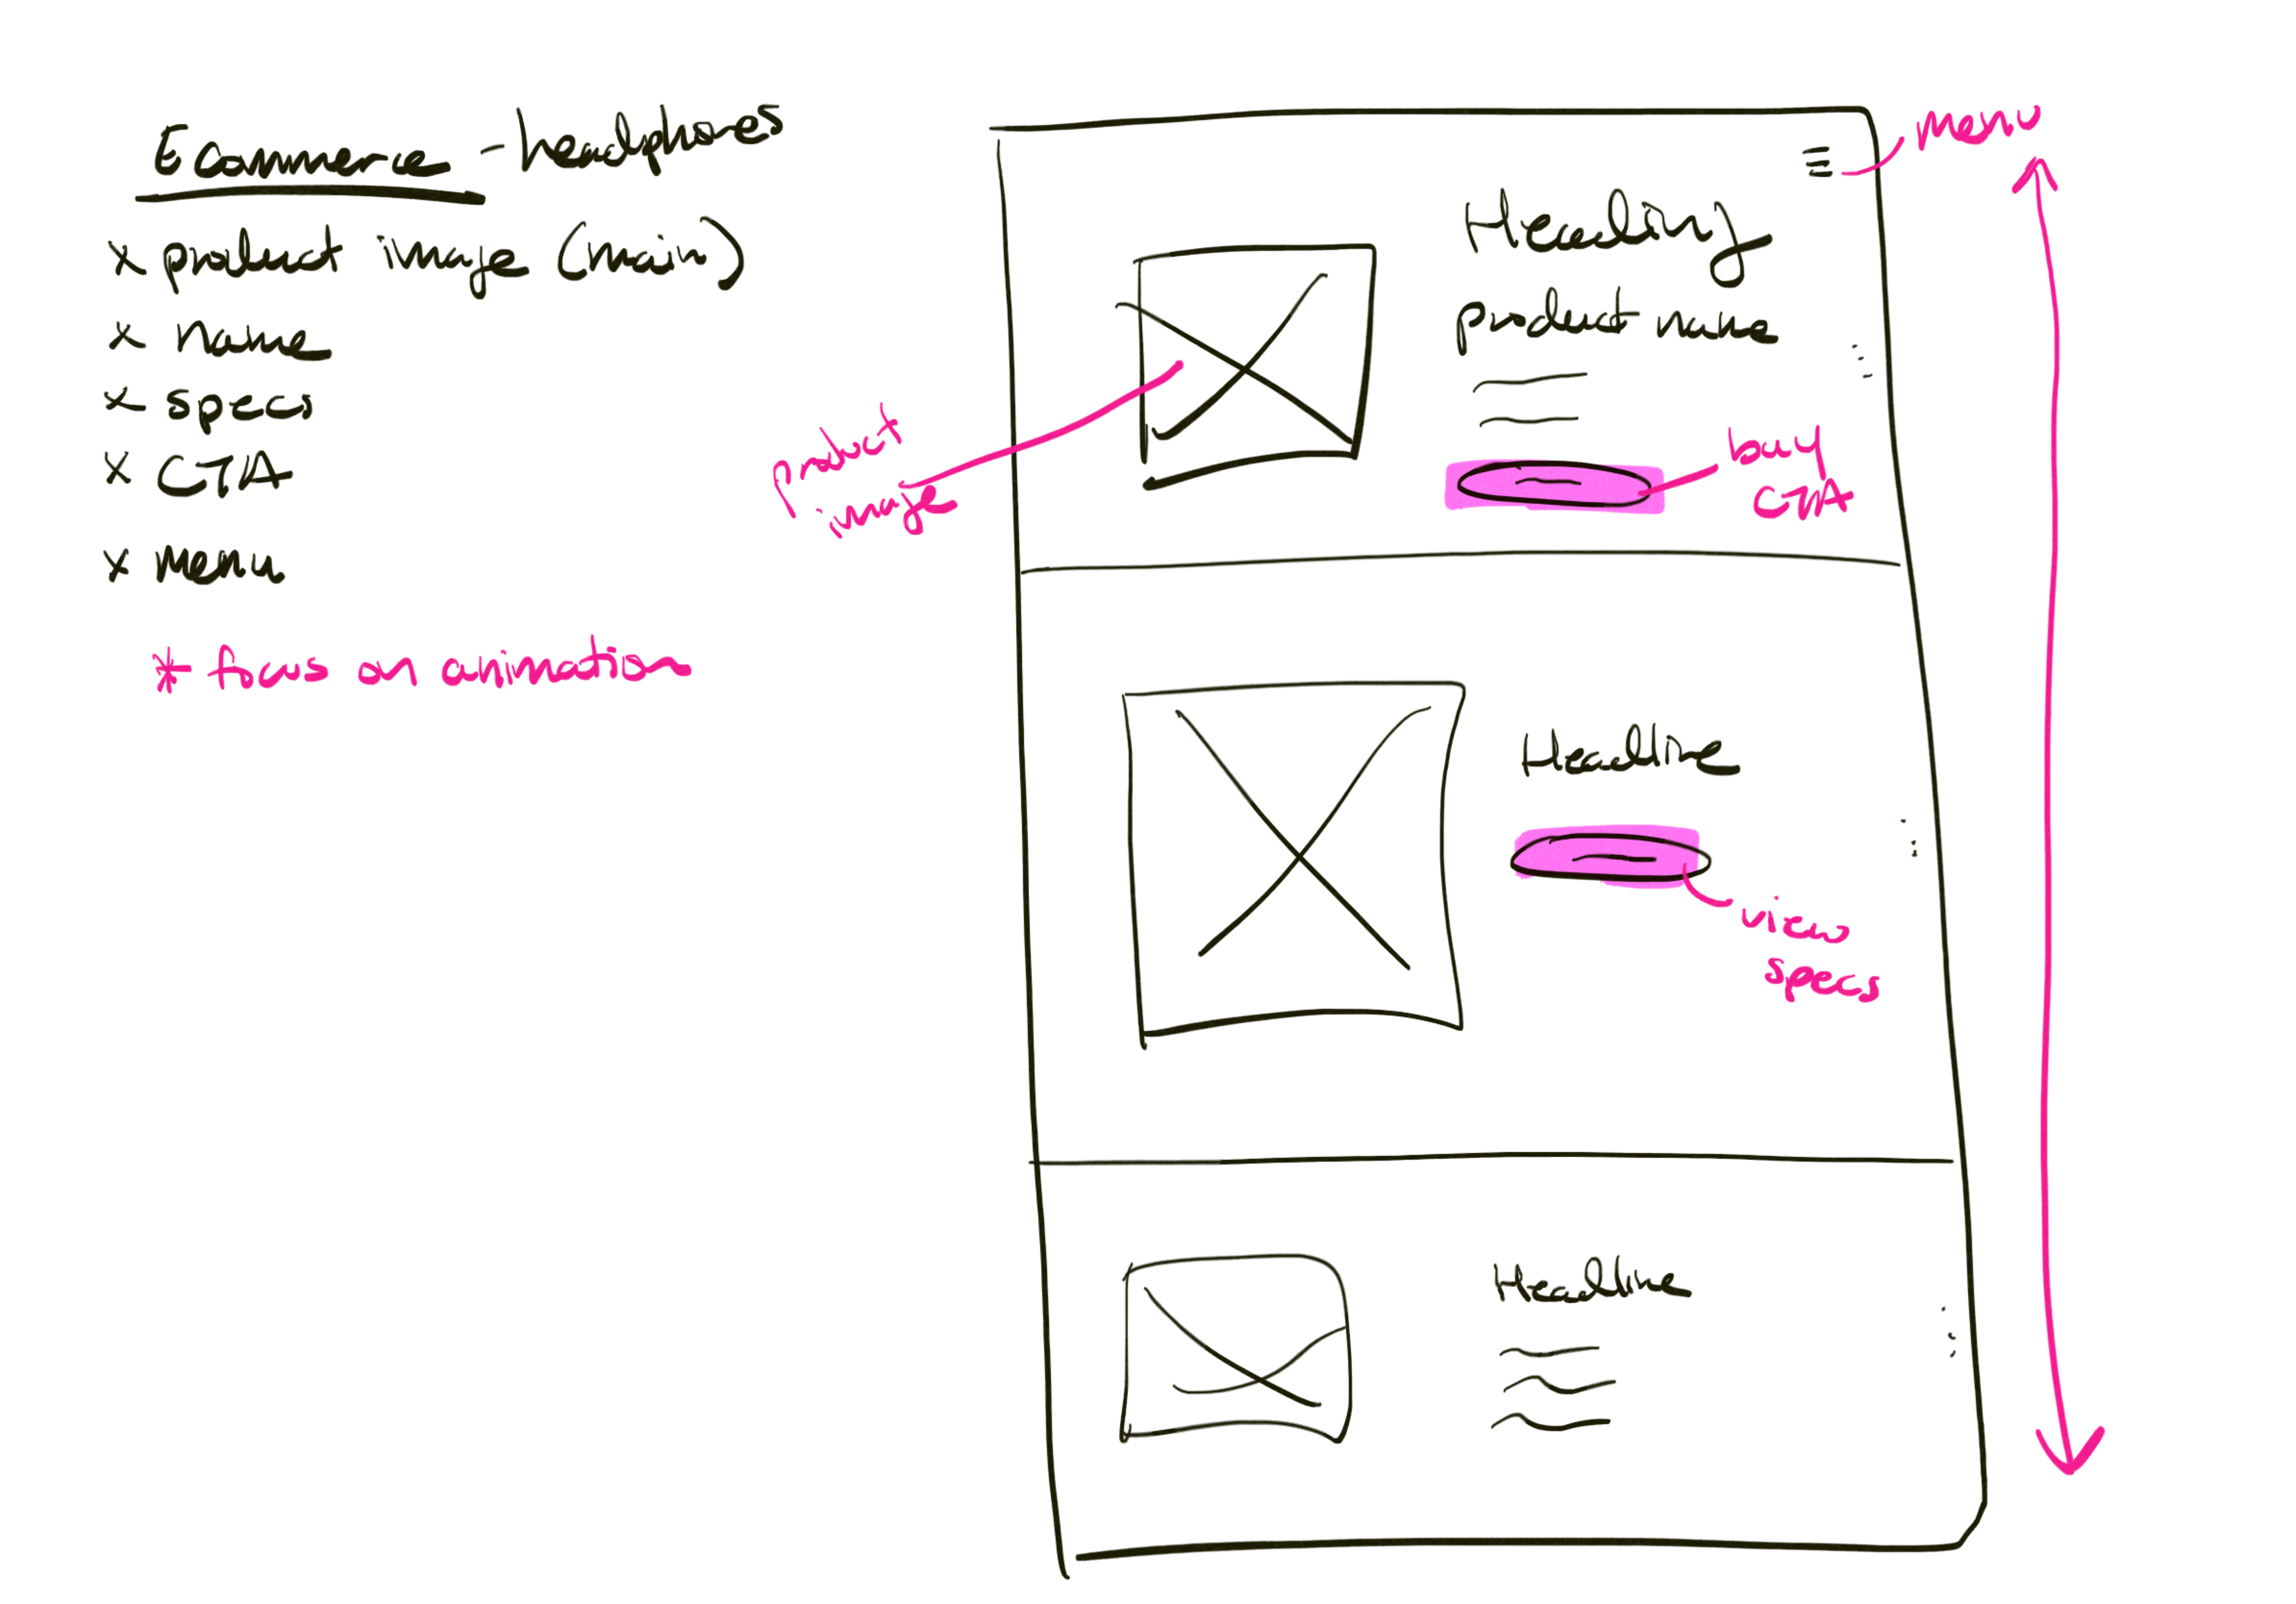 Ecommerce - headphones
x product image (main)
x Name
x specs
x CTA
x Menu
* focus on animation
menu
Heading
product name
product
image
buy
CTA
Headline
view
specs
Headline